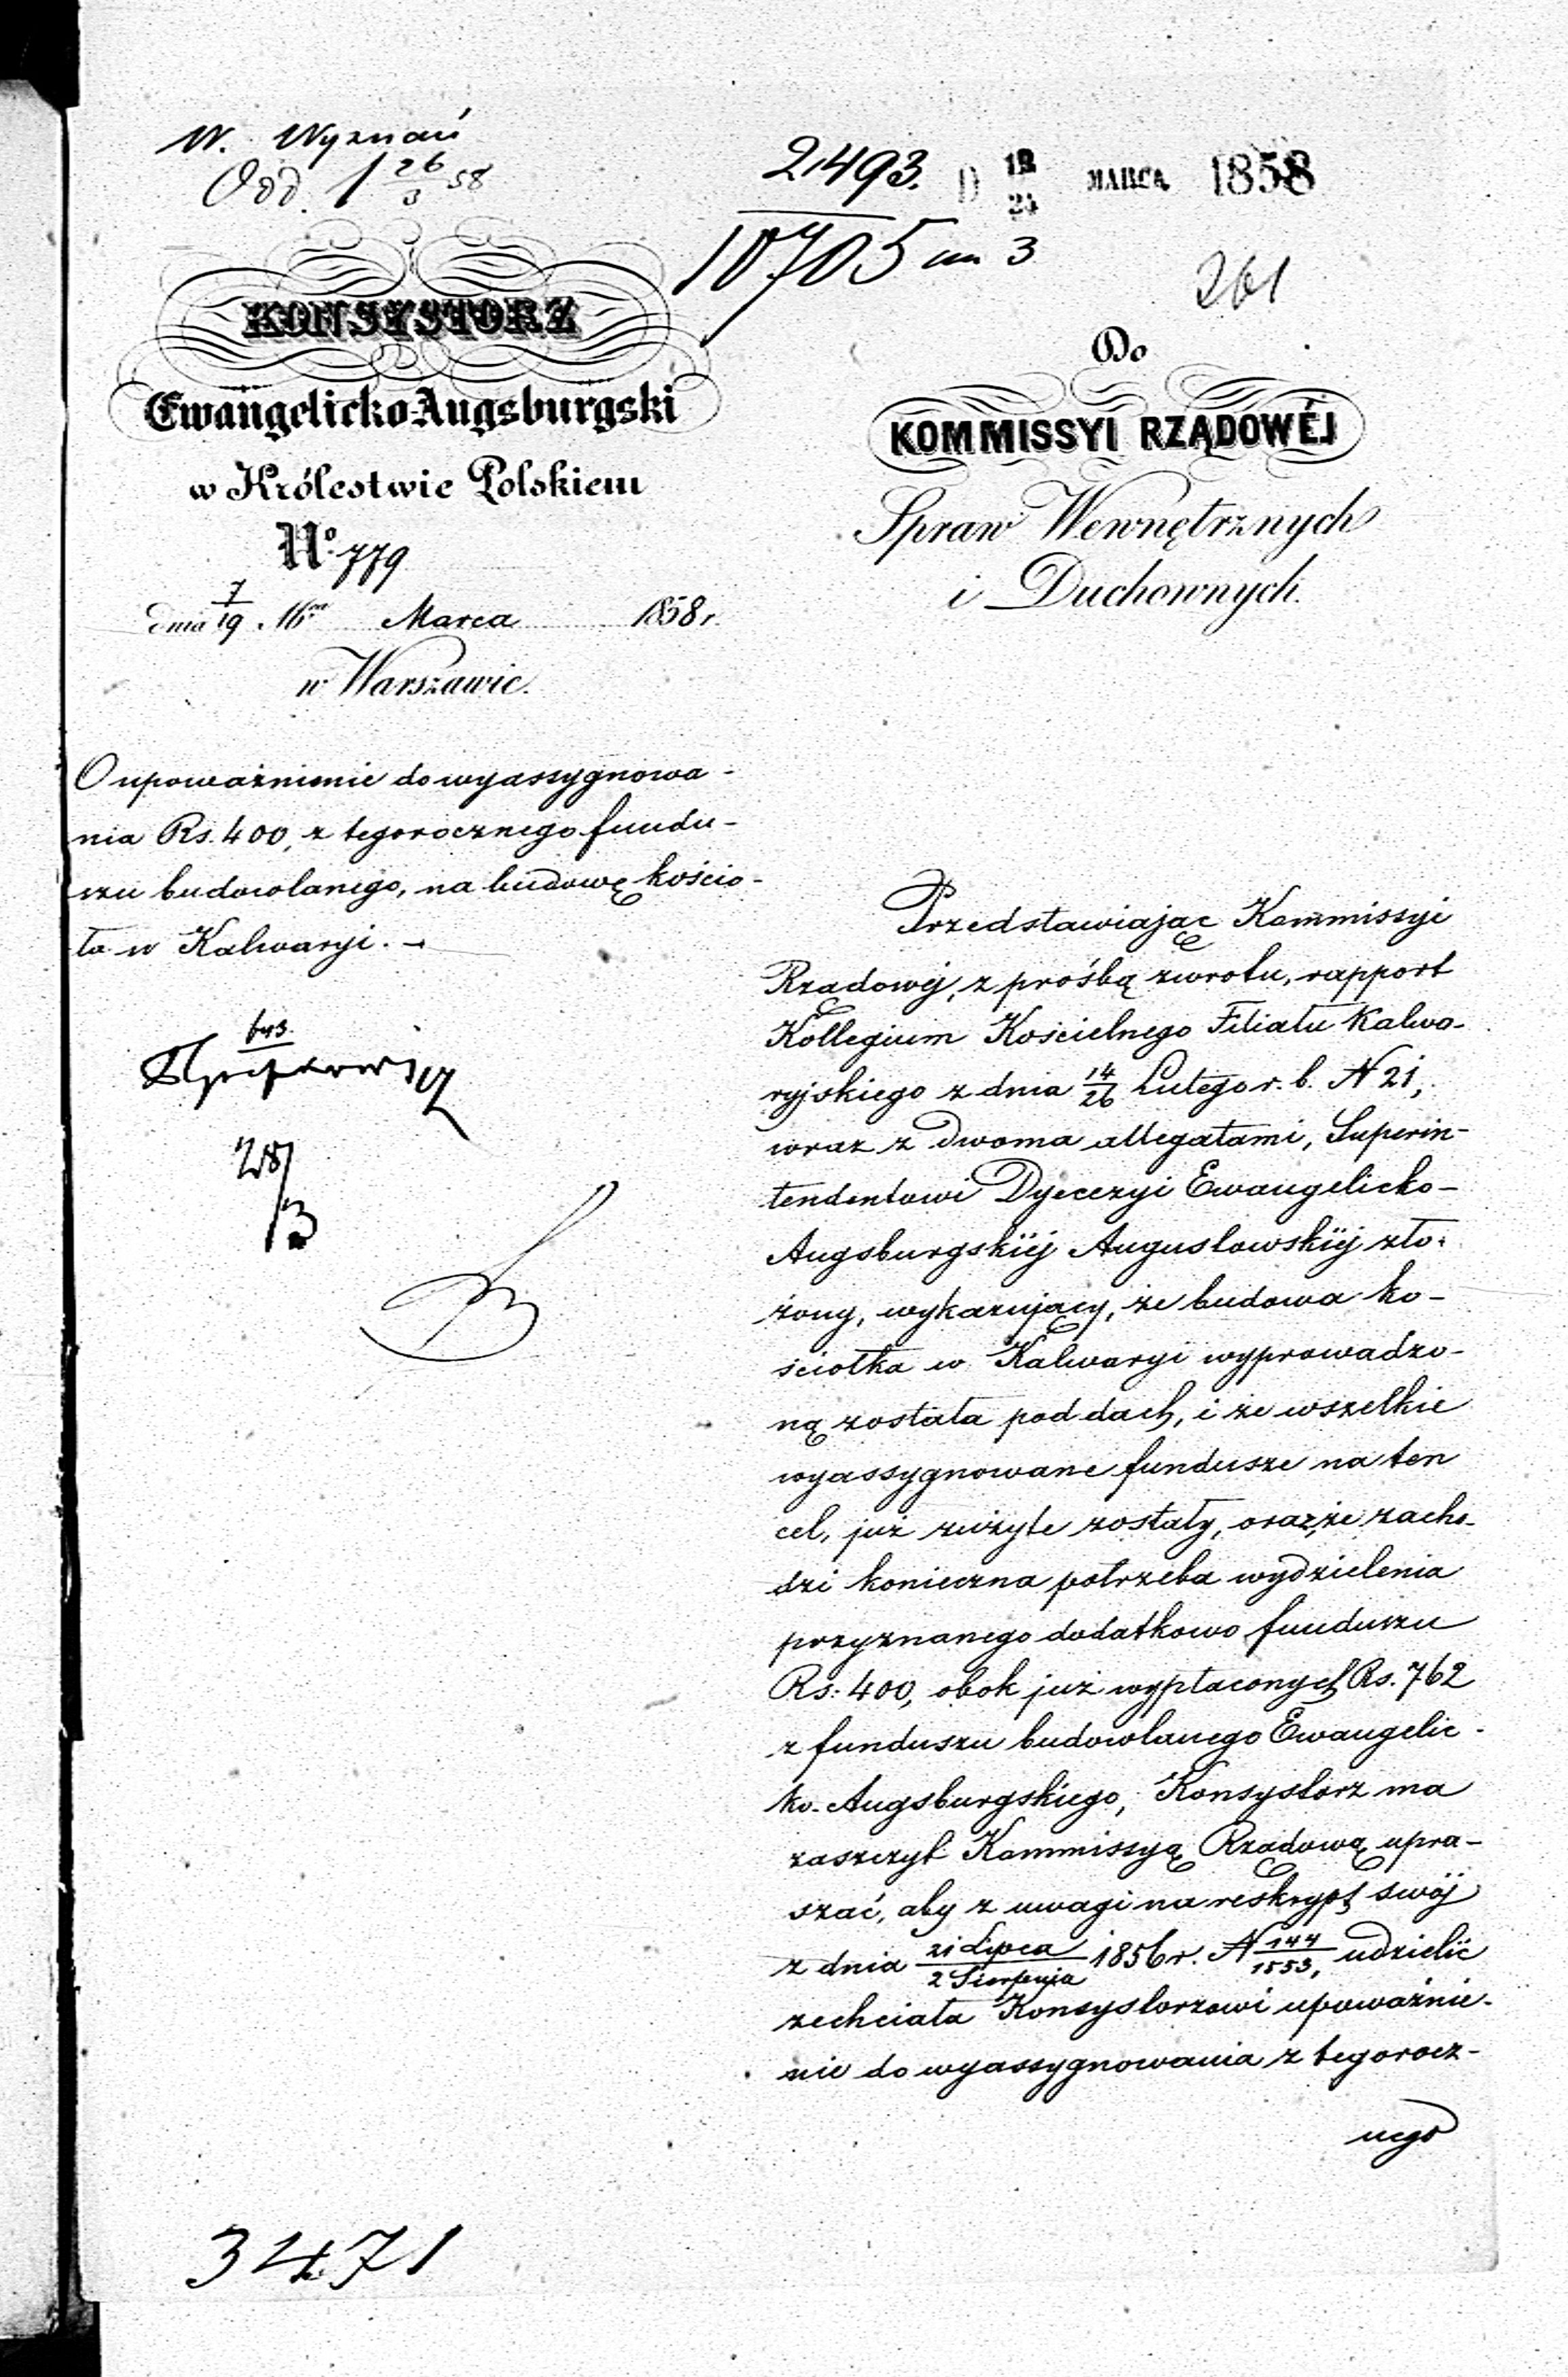 W. Wyznań
Odd. 1 26/3 58
2493. D 12/24 MARCA 1858
10705 3
261
KONSYSTORZ
Ewangelicko-Augsburgski
w Królestwie Polskiem
No. 779
dnia 7/19 Mca Marca 1858 r.
w Warszawie.
Do
KOMMISSYI RZĄDOWÉJ
Spraw Wewnętrznych
i Duchownych.
O upoważnienie do wyassygnowa-
nia Rs. 400, z tegorocznego fundu-
szu budowlanego, na budowę kościo-
ła w Kalwaryi. –
28/3
Przedstawiając Kommissyi
Rządowéj, z prośbą zwrotu, rapport
Kollegium Kościelnego Filiału Kalwa-
ryjskiego z dnia 14/26 Lutego r. b. N 21,
wraz z dwoma allegatami, Superin-
tendentowi Dyecezyi Ewangelicko-
Augsburgskiéj Augustowskiéj zło-
żony, wykazujący, że budowa ko-
ściołka w Kalwaryi wyprowadzo-
ną została pod dach, i że wszelkie
wyassygnowane fundusze na ten
cel, już zużyte zostały, oraz, że zacho-
dzi konieczna potrzeba wydzielenia
przyznanego dodatkowo funduszu
Rs: 400, obok już wypłaconych Rs. 762
z funduszu budowlanego Ewangelic-
ko-Augsburgskiego, Konsystorz ma
zaszczyt Kommissyą Rządową upra-
szać, aby z uwagi na reskrypt swój
z dnia 21 Lipca/2 Sierpnia 1856 r. N 144/1553, udzielić
zechciała Konsystorzowi upoważnie-
nie do wyassygnowania z tegorocz-
nego
3471